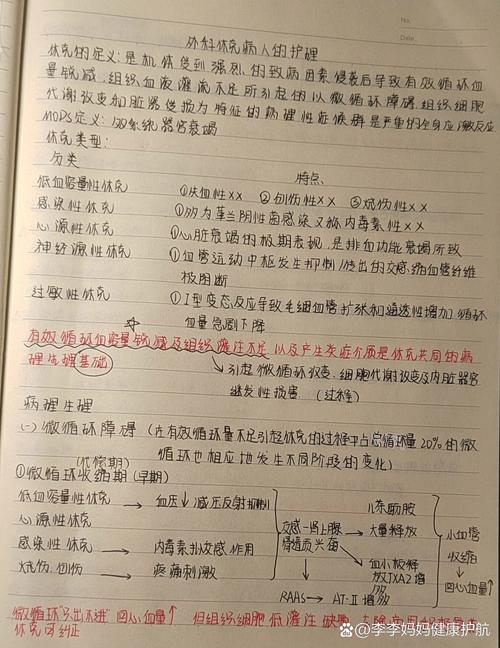 No.
Date.
外科休克病人的护理
休克的定义:是机体受到强烈的致病因素侵袭后导致有效循环血
量锐减.组织血液灌流不足所引起的以微循环障碍.组织细胞
代谢改变和脏器受损为特征的病理性症候群是严重的全身应激反应
MODS定义:多系统器官衰竭
休克类型:
分类 特点
低血容量性休克 ①失血性×× ②创伤性×× ③烧伤性××
感染性休克 ①多为革兰阴性菌感染又称内毒素性××
心源性休克 ①心脏衰竭的极期表现,是排血功能衰竭所致
神经源性休克 ①血管运动中枢发生抑制/传出的交感缩血管纤维
被阻断
过敏性休克 ①I型变态反应导致毛细血管扩张和通透性增加.循环
血量急剧下降
有效循环血容量锐减及组织灌注不足以及产生炎症介质是休克共同的病
理生理基础
引起微循环改变.细胞代谢改变及内脏器官
继发性损害.(过程)
病理生理
(一)微循环障碍(在有效循环量不足引起休克的过程中占总循环量20%的微
循环也相应地发生不同阶段的变化)
(代偿期)
①微循环收缩期(早期)
低血容量性休克 → 血压↓ 减压反射抑制
心源性休克
感染性休克 → 内毒素拟交感作用
烧伤.创伤 → 疼痛刺激
交感-肾上腺
髓质兴奋
儿茶酚胺
大量释放
血小板释
放TXA2增
放
RAAS → AT-Ⅱ增放
小血管
收缩
↓
回心血量↑
微循环"只出不进" 回心血量↑ 但组织细胞低灌注缺氧
休克可纠正
@李李妈妈健康护航